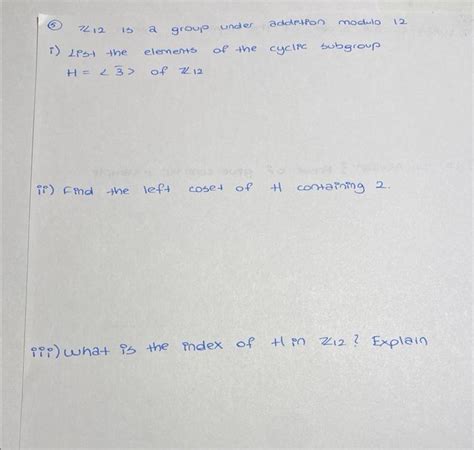 ⑤ ℤ12 is a group under addition modulo 12
i) List the elements of the cyclic subgroup
H = < 3̅ > of ℤ12
ii) Find the left coset of H containing 2.
iii) What is the index of H in ℤ12? Explain